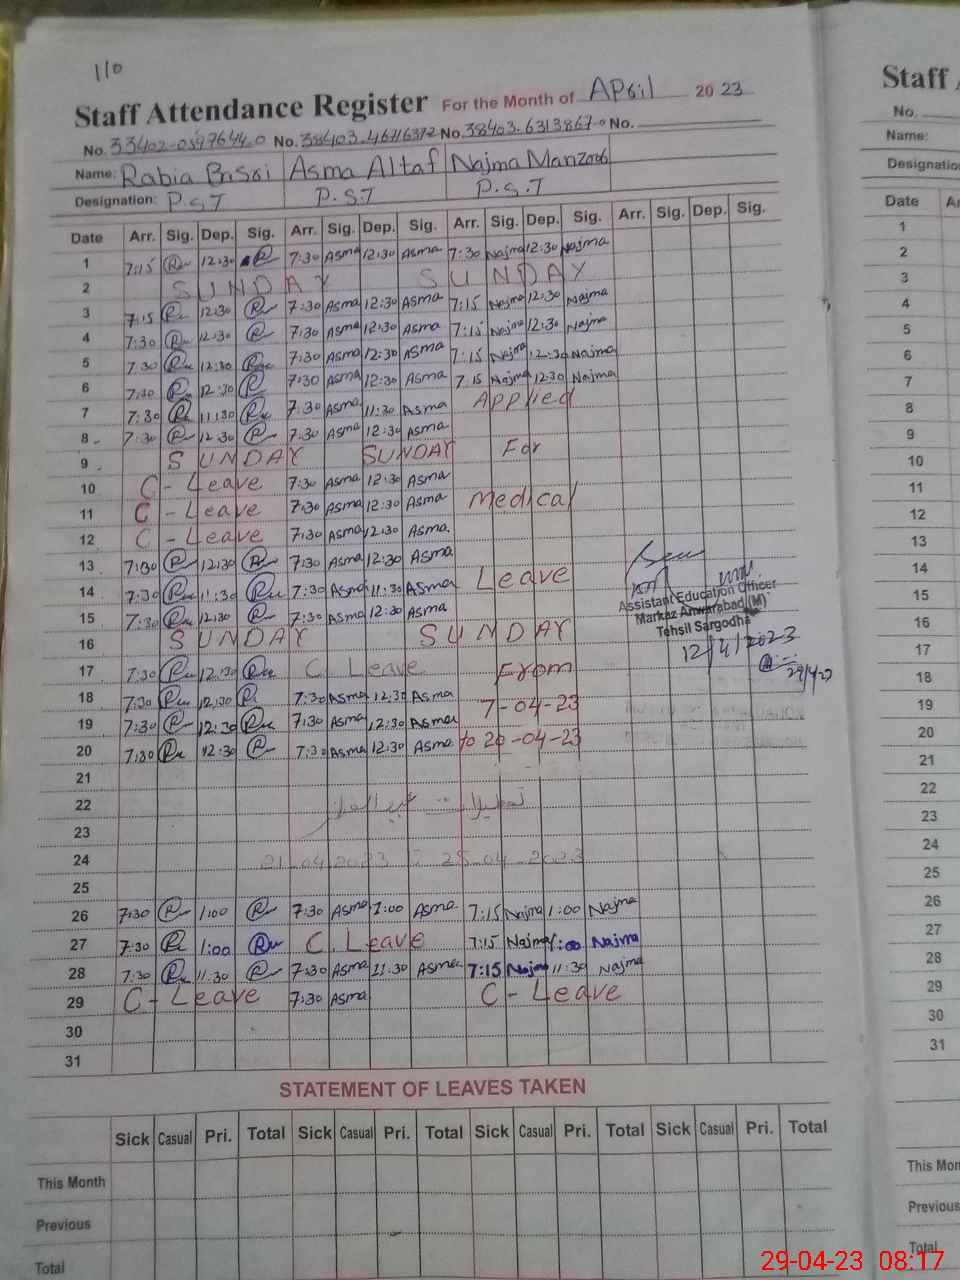 110
Staff Attendance Register For the Month of April 2023
No. 33402-0597644-0 No. 38403-4676637-2 No. 38403-6313867-0 No.
Name: Rabia Basri Asma Altaf Najma Manzoor
Designation: P.S.T P.S.T P.S.T
Date Arr. Sig. Dep. Sig. Arr. Sig. Dep. Sig. Arr. Sig. Dep. Sig. Arr. Sig. Dep. Sig.
1 7:15 12:30 7:30 Asma 12:30 Asma 7:30 Najma 12:30 Najma
2 SUNDAY SUNDAY
3 7:15 12:30 7:30 Asma 12:30 Asma 7:15 Najma 12:30 Najma
4 7:30 12:30 7:30 Asma 12:30 Asma 7:15 Najma 12:30 Najma
5 7:30 12:30 7:30 Asma 12:30 Asma 7:15 Najma 12:30 Najma
6 7:30 12:30 7:30 Asma 12:30 Asma 7:15 Najma 12:30 Najma
7 7:30 11:30 7:30 Asma 11:30 Asma Applied
8 7:30 12:30 7:30 Asma 12:30 Asma
9 SUNDAY SUNDAY For
10 C - Leave 7:30 Asma 12:30 Asma
11 C - Leave 7:30 Asma 12:30 Asma Medical
12 C - Leave 7:30 Asma 12:30 Asma
13 7:30 12:30 7:30 Asma 12:30 Asma
14 7:30 11:30 7:30 Asma 11:30 Asma Leave
15 7:30 12:30 7:30 Asma 12:30 Asma
Assistant Education Officer
Markaz Anwarabad (M)
Tehsil Sargodha
12/4/2023
29/4/23
16 SUNDAY SUNDAY
17 7:30 12:30 C Leave From
18 7:30 12:30 7:30 Asma 12:30 Asma 7-04-23
19 7:30 12:30 7:30 Asma 12:30 Asma
20 7:30 12:30 7:30 Asma 12:30 Asma to 20-04-23
21
22 تعطیلات عید الفطر
23
24 21-04-2023 تا 25-04-2023
25
26 7:30 1:00 7:30 Asma 1:00 Asma 7:15 Najma 1:00 Najma
27 7:30 1:00 C. Leave 7:15 Najma 1:00 Najma
28 7:30 11:30 7:30 Asma 11:30 Asma 7:15 Najma 11:30 Najma
29 C - Leave 7:30 Asma C - Leave
30
31
STATEMENT OF LEAVES TAKEN
Sick Casual Pri. Total Sick Casual Pri. Total Sick Casual Pri. Total Sick Casual Pri. Total
This Month
Previous
Total
Staff
No.
Name:
Designation
Date
1
2
3
4
5
6
7
8
9
10
11
12
13
14
15
16
17
18
19
20
21
22
23
24
25
26
27
28
29
30
31
This Mon
Previous
Total
29-04-23 08:17